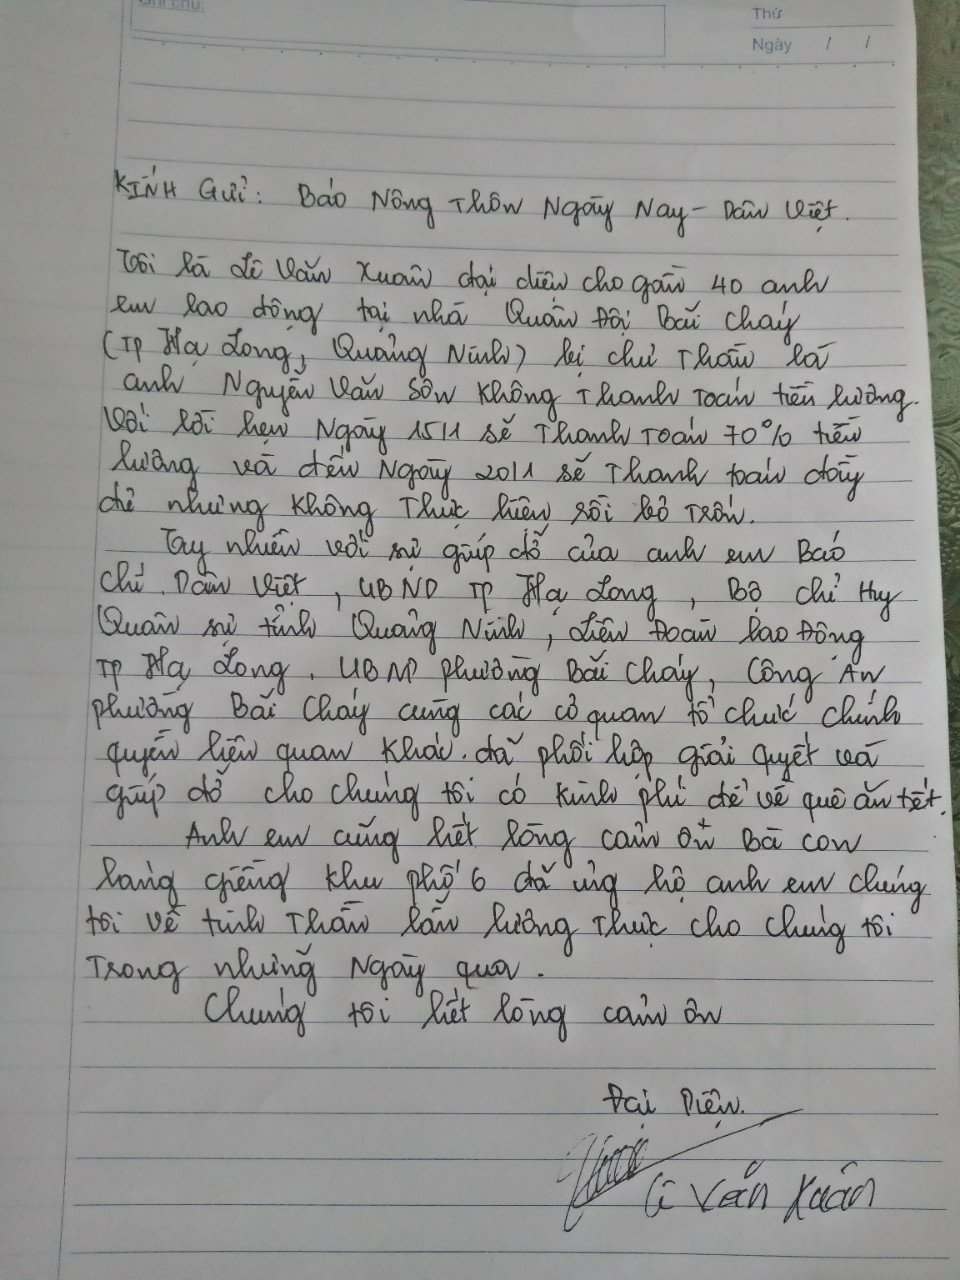 Ghi chú:
Thứ
Ngày / /
KÍNH GửI: Báo Nông Thôn Ngày Nay - Dân Việt.
Tôi là Lê Văn Xuân đại diên cho gần 40 anh
em lao động tại nhà Quân Đội Bãi Cháy
(TP Hạ Long, Quảng Ninh) bị chủ Thầu là
anh Nguyễn Văn Sơn Không Thanh Toán tiền lương.
Với lời hẹn Ngày 15/1 sẽ Thanh Toán 70% tiền
lương và đến Ngày 20/1 sẽ Thanh toán đầy
đủ nhưng Không Thực hiện rồi bỏ Trốn.
Tuy nhiên với sự giúp đỡ của anh em Báo
chí Dân Việt, UBND TP Hạ Long, Bộ chỉ Huy
Quân sự tỉnh Quảng Ninh, Liên Đoàn lao Động
TP Hạ Long. UBND phường Bãi Cháy, Công An
phường Bãi Cháy cùng các cơ quan tổ chức chính
quyền liên quan Khác. đã phối hợp giải quyết và
giúp đỡ cho chúng tôi có kinh phí để về quê ăn tết.
Anh em cũng hết lòng cảm ơn Bà con
làng giềng khu phố 6 đã ủng hộ anh em chúng
tôi về tinh Thần lẫn lương Thực cho chúng tôi
Trong những Ngày qua.
Chúng tôi hết lòng cảm ơn
Đại Diện.
Lê Văn Xuân